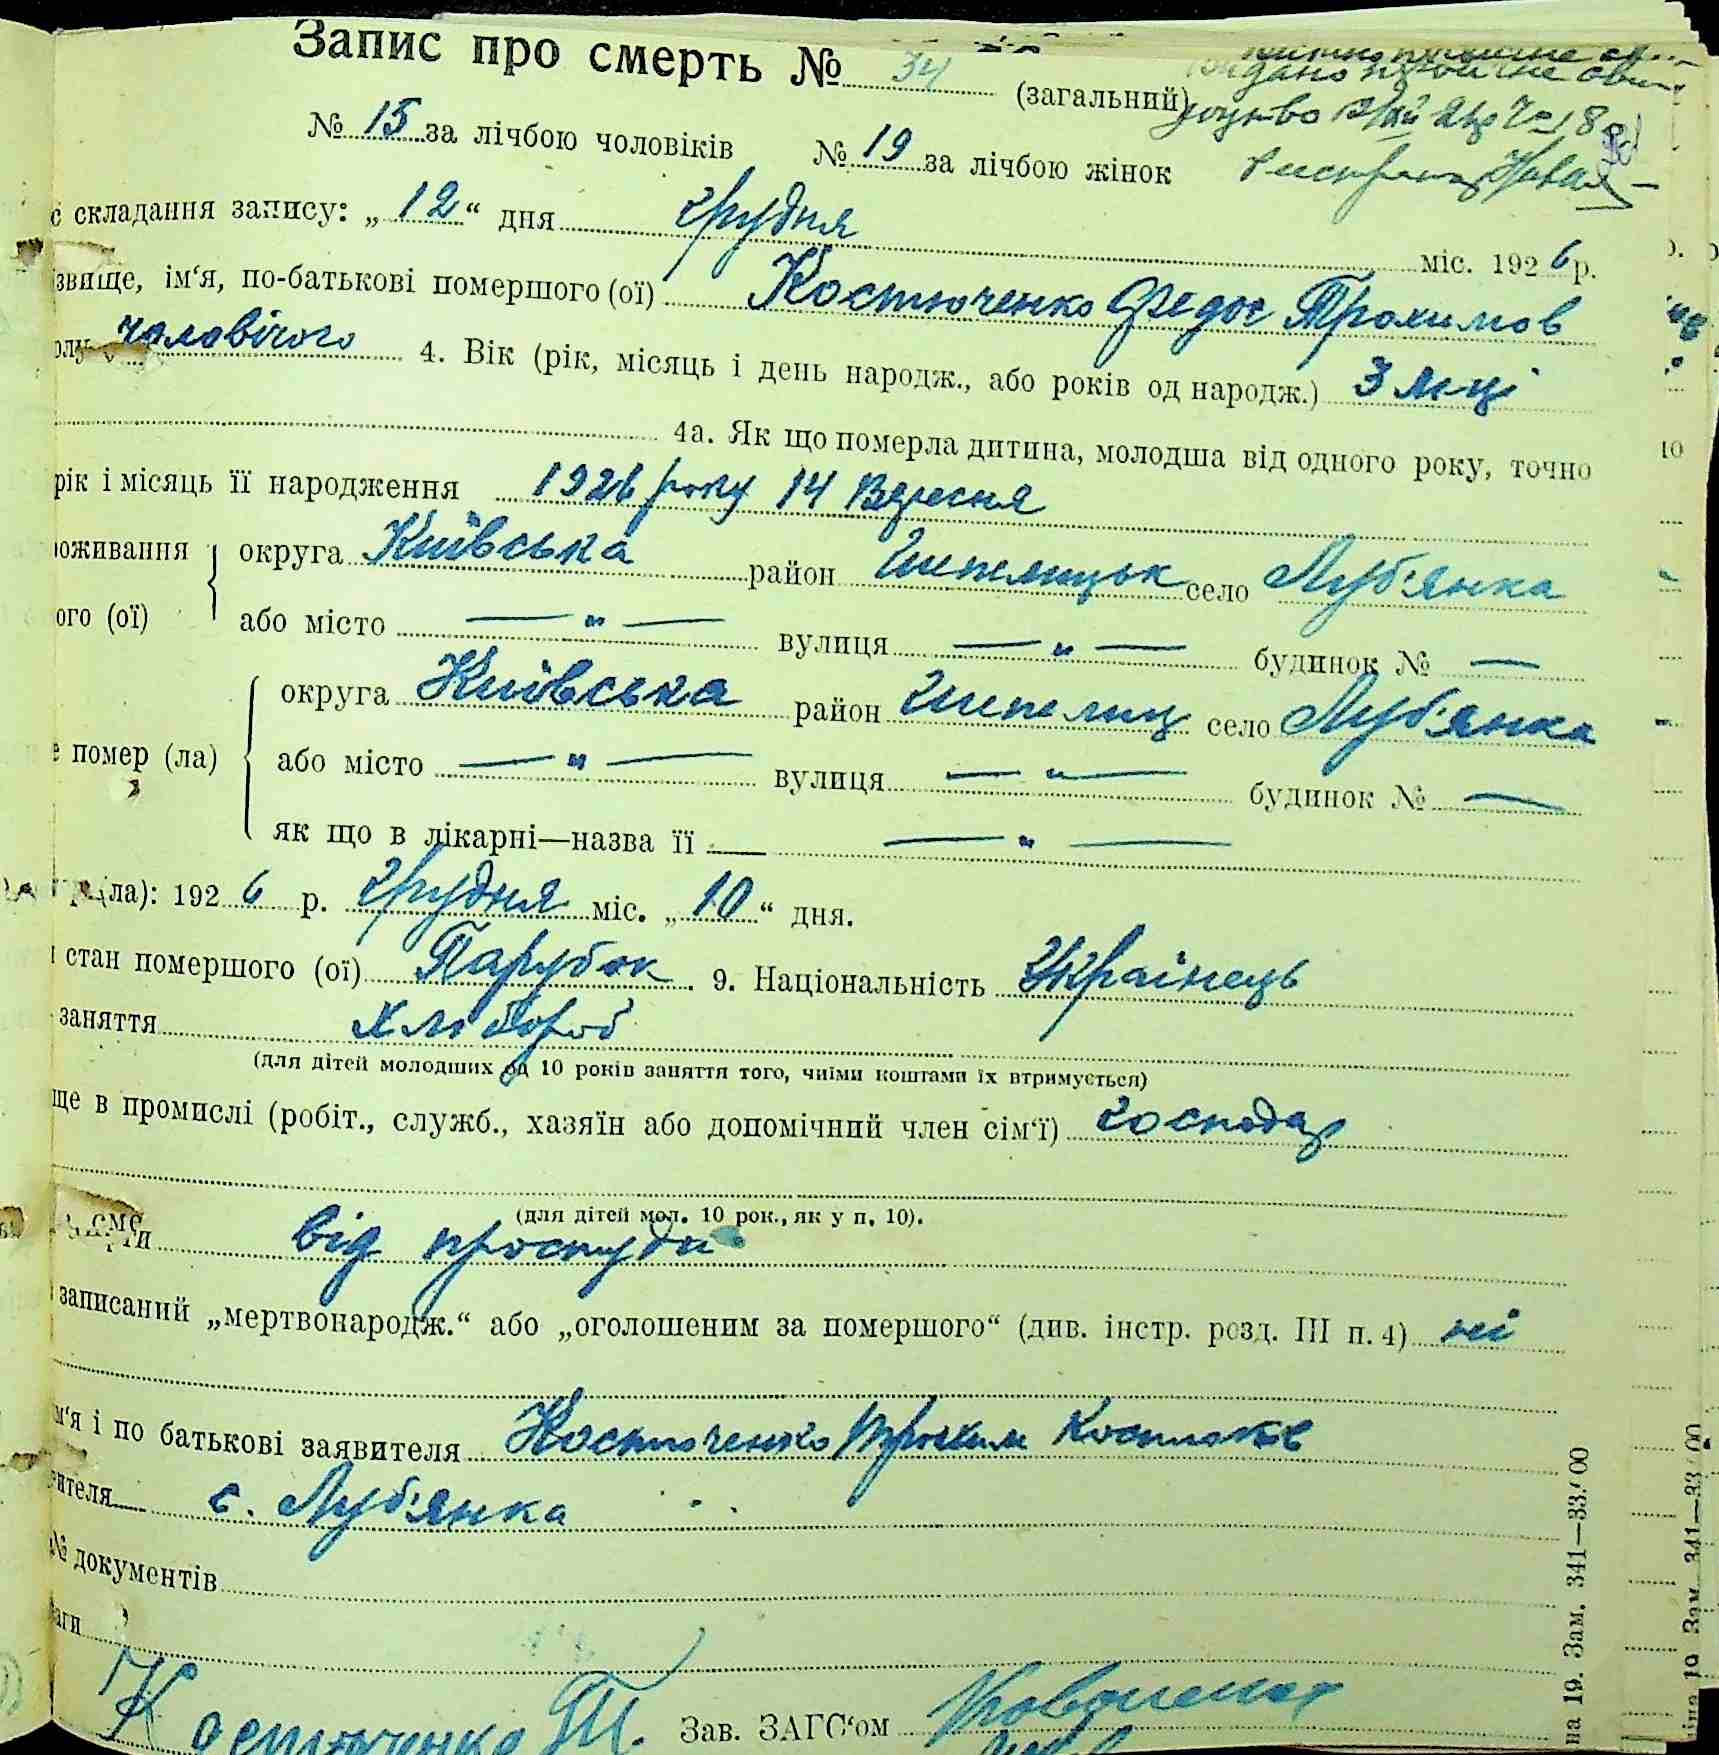 Запис про смерть № 34 (загальний)
№ 15 за лічбою чоловіків № 19 за лічбою жінок
с складання запису: „ 12 “ дня грудня міс. 1926 р.
звище, ім‘я, по-батькові помершого (ої) Костюченко Федос Трохимов
олу чоловічого 4. Вік (рік, місяць і день народж., або років од народж.) 3 м-ці
4а. Як що померла дитина, молодша від одного року, точно
рік і місяць її народження 1926 року 14 Вересня
роживання округа Київська район село Луб'янка
ого (ої) або місто — „ — вулиця — „ — будинок № —
округа Київська район село Луб'янка
е помер (ла) або місто — „ — вулиця — „ — будинок № —
як що в лікарні—назва її — „ —
(ла): 1926 р. Грудня міс. „ 10 “ дня.
стан помершого (ої) Парубок. 9. Національність Українець
заняття хлібороб
(для дітей молодших од 10 років заняття того, чиїми коштами їх втримується)
ще в промислі (робіт., служб., хазяїн або допомічний член сім‘ї) господар
(для дітей мол. 10 рок., як у п. 10).
смерти від простуди
записаний „мертвонародж.“ або „оголошеним за помершого“ (див. інстр. розд. III п. 4) ні
м‘я і по батькові заявителя Костюченко Трохим
вителя с. Луб'янка
№ документів
аги
Костюченко Т. Зав. ЗАГС‘ом
на 19. Зам. 341—33.000